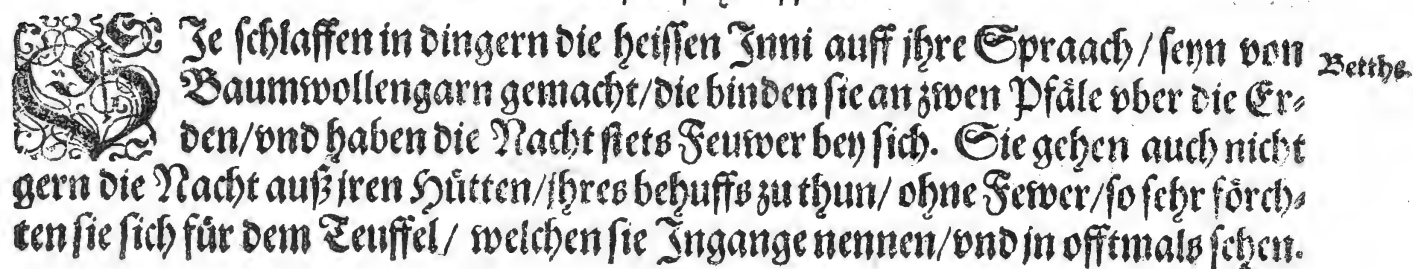 SJe schlaffen in dingern die heissen Inni auff jhre Spraach / seyn von
Baumwollengarn gemacht/die binden sie an zwen Pfäle vber die Er-
den/vnd haben die Nacht stets Feuwer bey sich. Sie gehen auch nicht
gern die Nacht auß jren Hütten/jhres behuffs zu thun/ ohne Fewer/so sehr förch-
ten sie sich für dem Teuffel/ welchen sie Ingange nennen/vnd jn offtmals sehen.